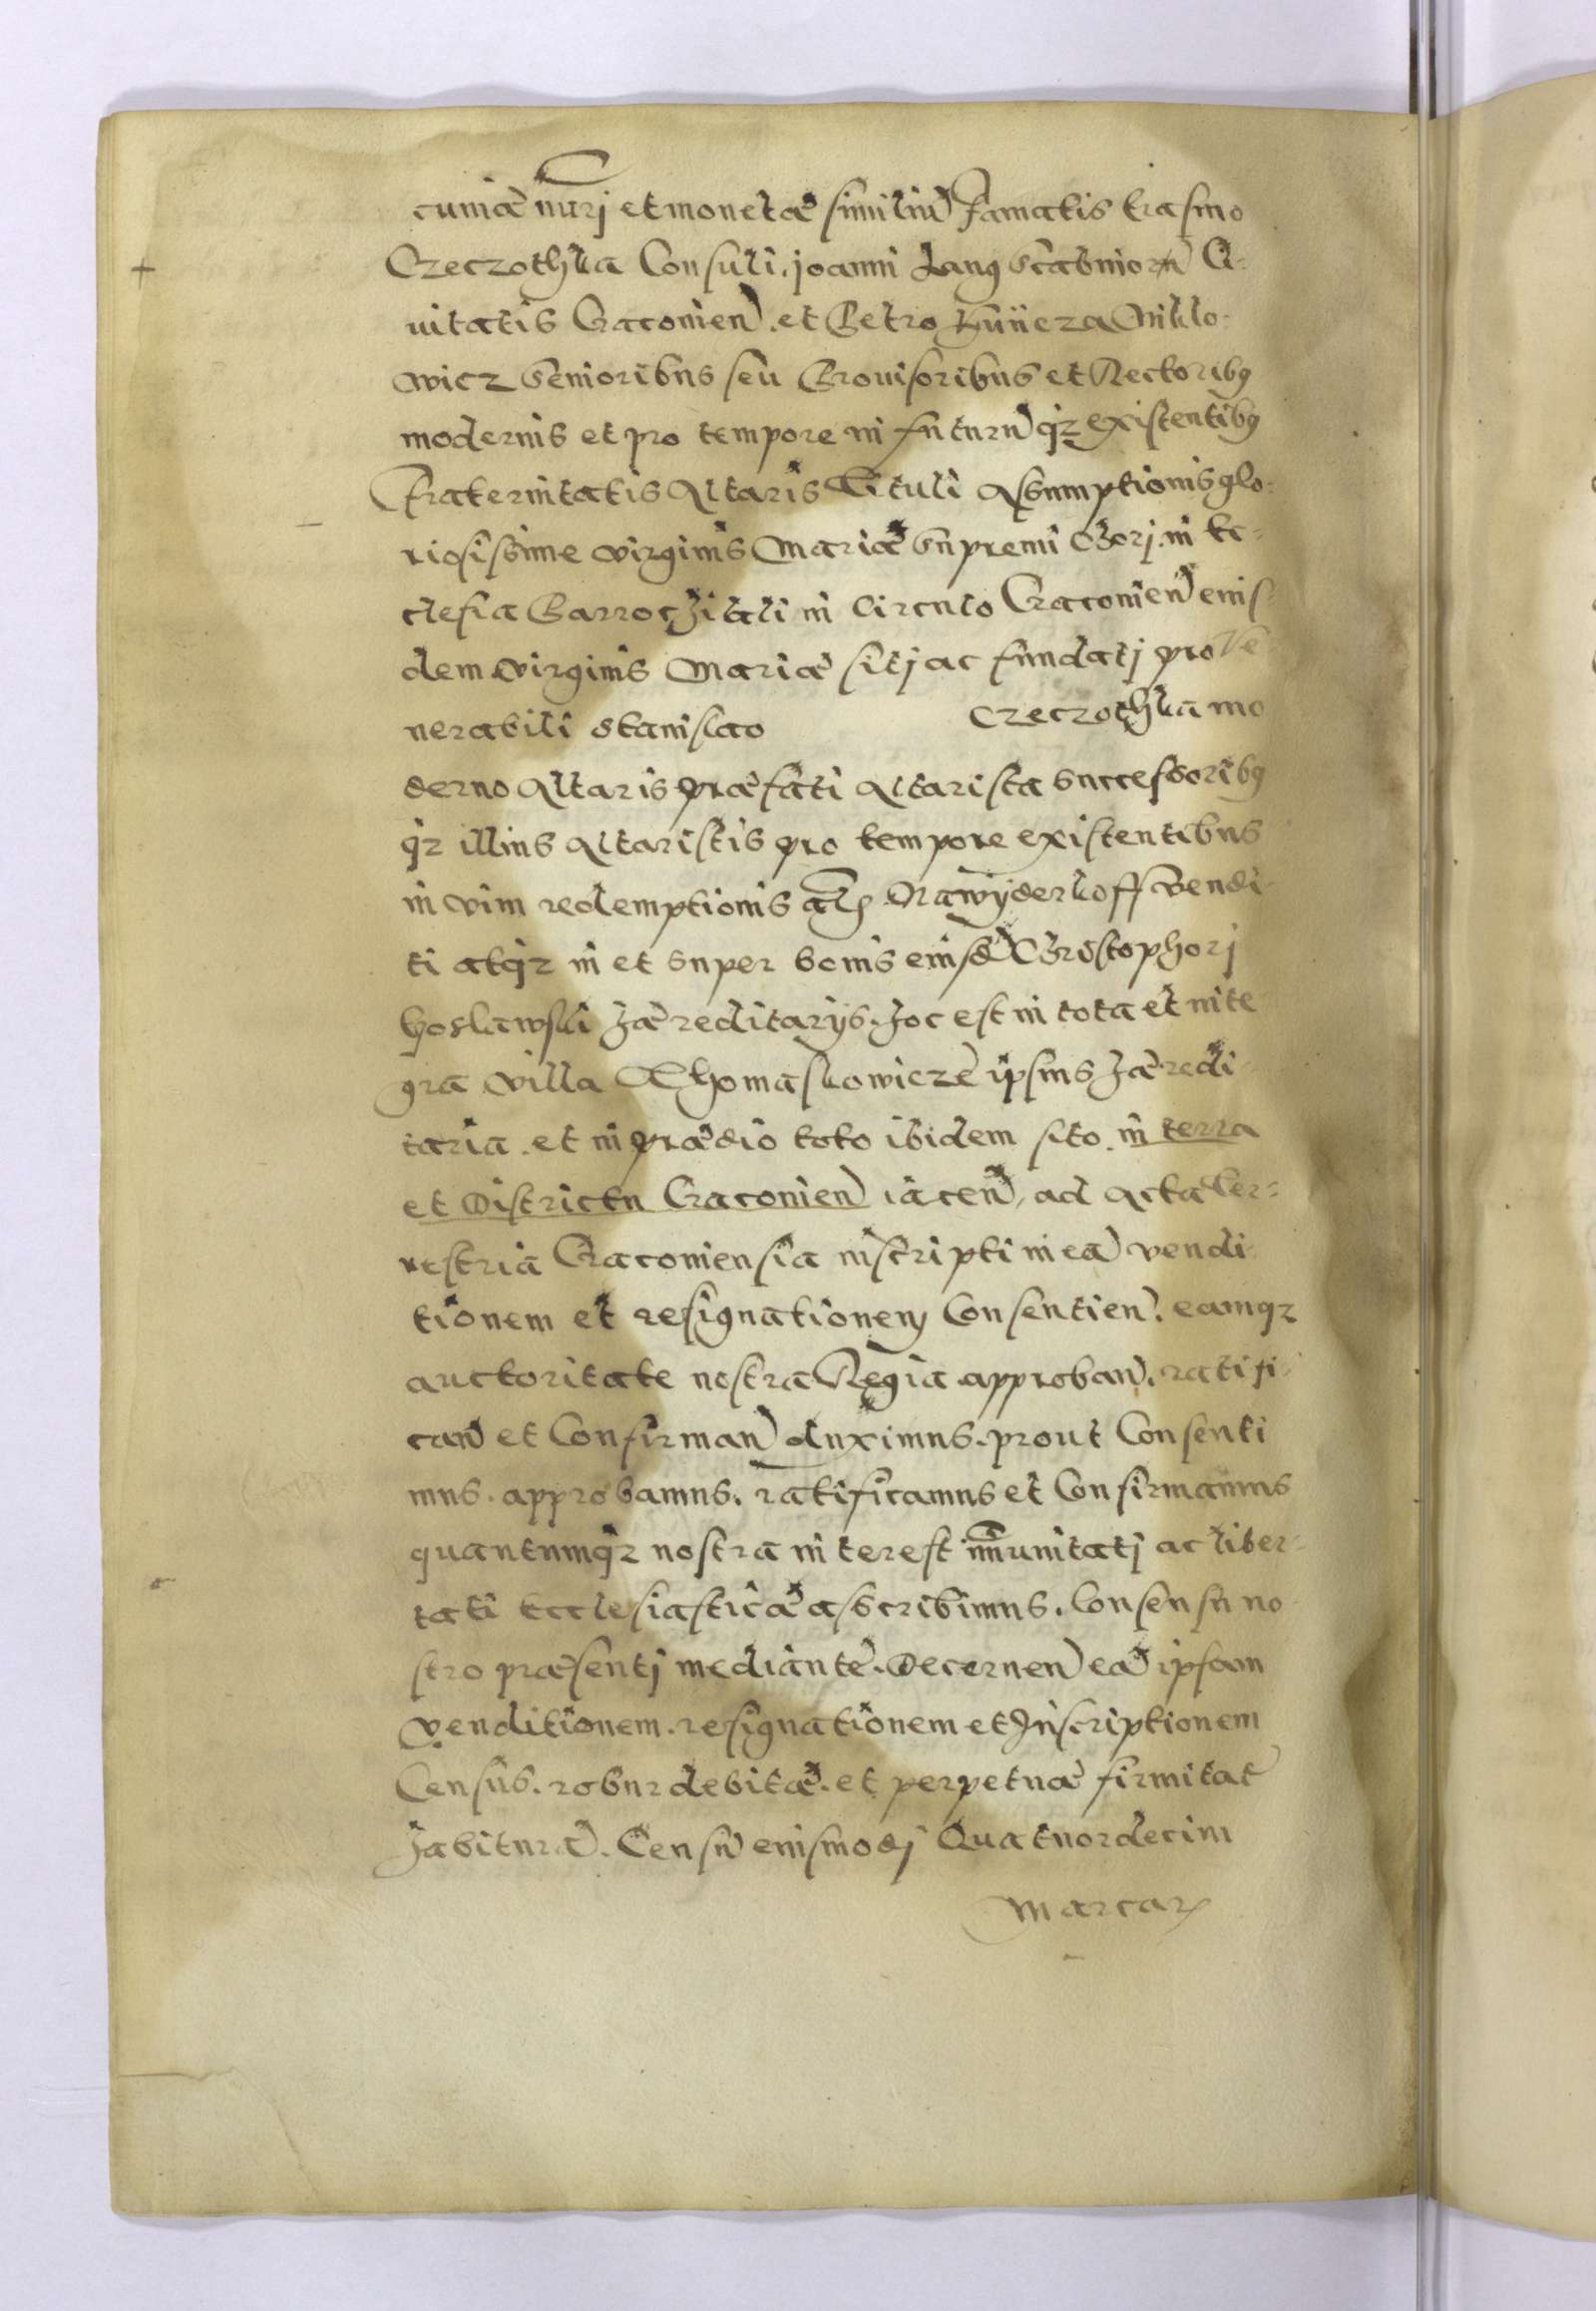 cuniæ nũrj et monetæ similiũ Famatis Erasmo
Czeczothka Consuli, joanni Lang Scabinorũ Ci-
uitatis Cracouien̄. et Petro Miklo-
wicz Senioribus seu Prouisoribus et Rectoribꝯ
modernis et pro tempore in futurũ qꝫ existentibꝯ
Fraternitatis Altaris Tituli Assumptionis glo-
riosissime virginis Mariæ supremi Chorj. in Ec-
clesia Parrochiali in Circulo Cracouien̄ eius-
dem virginis Mariæ sitj ac fundatj pro Ve-
nerabili Stanislao Czeczothka mo
derno Altaris præfati Altarista successoribꝯ
qꝫ illius Altaristis pro tempore existentibus
in vim redemptionis al̄s Nawyderkoff vendi-
ti atqꝫ in et super bonis eiusd̄ Christophorj
hæreditarijs. hoc est in tota et inte
gra villa Thomaskowicze ipsius hæredi-
taria. et in prædio toto ibidem sito. in terra
et Districtu Cracouien̄ iacen̄, ad Acta ter-
restria Cracouiensia inscripti in eā vendi-
tionem et resignationem Consentien̄. eamqꝫ
auctoritate nostra Regia approban̄. ratifi-
can̄ et Confirman̄ duximus. prout Consenti
mus. approbamus. ratificamus et Confirmamus
quantumqꝫ nostra interest im̄unitatj ac liber-
tati Ecclesiasticæ asscribimus. Consensu no-
stro præsentj mediante. Decernen̄ eā ipsam
venditionem. resignationem et Inscriptionem
Census. robur debitæ. et perpetuæ firmitat̄
habiturā. Censũ eiusmodj Quatuordecim
Marcarꝫ